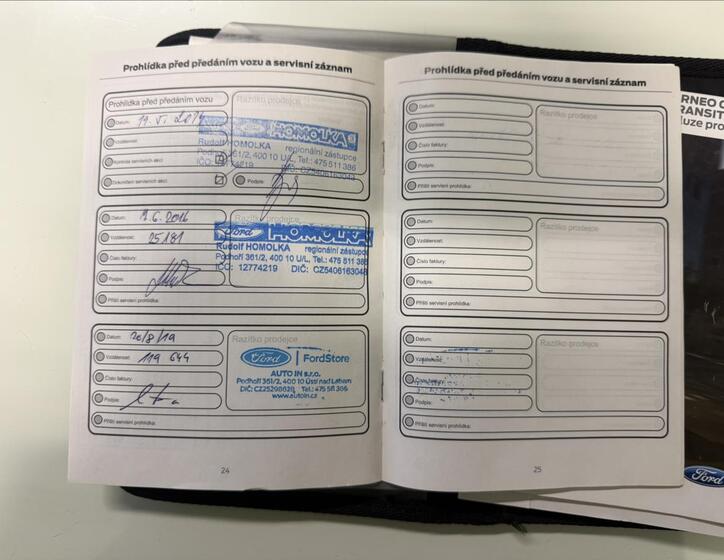 Prohlídka před předáním vozu a servisní záznam
Prohlídka před předáním vozu
Razítko prodejce
Datum:
Vzdálenost:
Kontrola servisních akcí:
Dokončení servisních akcí:
Podpis:
Ford HOMOLKA
Rudolf HOMOLKA regionální zástupce
Podhoří 361/2, 400 10 U/L, Tel.: 475 511 386
Datum: 1.6.2016
Razítko prodejce
Vzdálenost: 25181
Číslo faktury:
Podpis:
Příští servisní prohlídka:
Ford HOMOLKA
Rudolf HOMOLKA regionální zástupce
Podhoří 361/2, 400 10 U/L, Tel.: 475 511 386
IČO: 12774219 DIČ: CZ5406163048
Datum: 20/8/19
Razítko prodejce
Vzdálenost: 19 644
Číslo faktury:
Podpis:
Příští servisní prohlídka:
Ford FordStore
AUTO IN s.r.o.
Podhoří 361/2, 400 10 Ústí nad Labem
Tel.: 475 511 386
www.autoin.cz
24
Prohlídka před předáním vozu a servisní záznam
Datum:
Razítko prodejce
Vzdálenost:
Číslo faktury:
Podpis:
Příští servisní prohlídka:
Datum:
Razítko prodejce
Vzdálenost:
Číslo faktury:
Podpis:
Příští servisní prohlídka:
Datum:
Razítko prodejce
Vzdálenost:
Podpis:
Příští servisní prohlídka:
25
RNEO C
RANSIT
luze pro
Ford